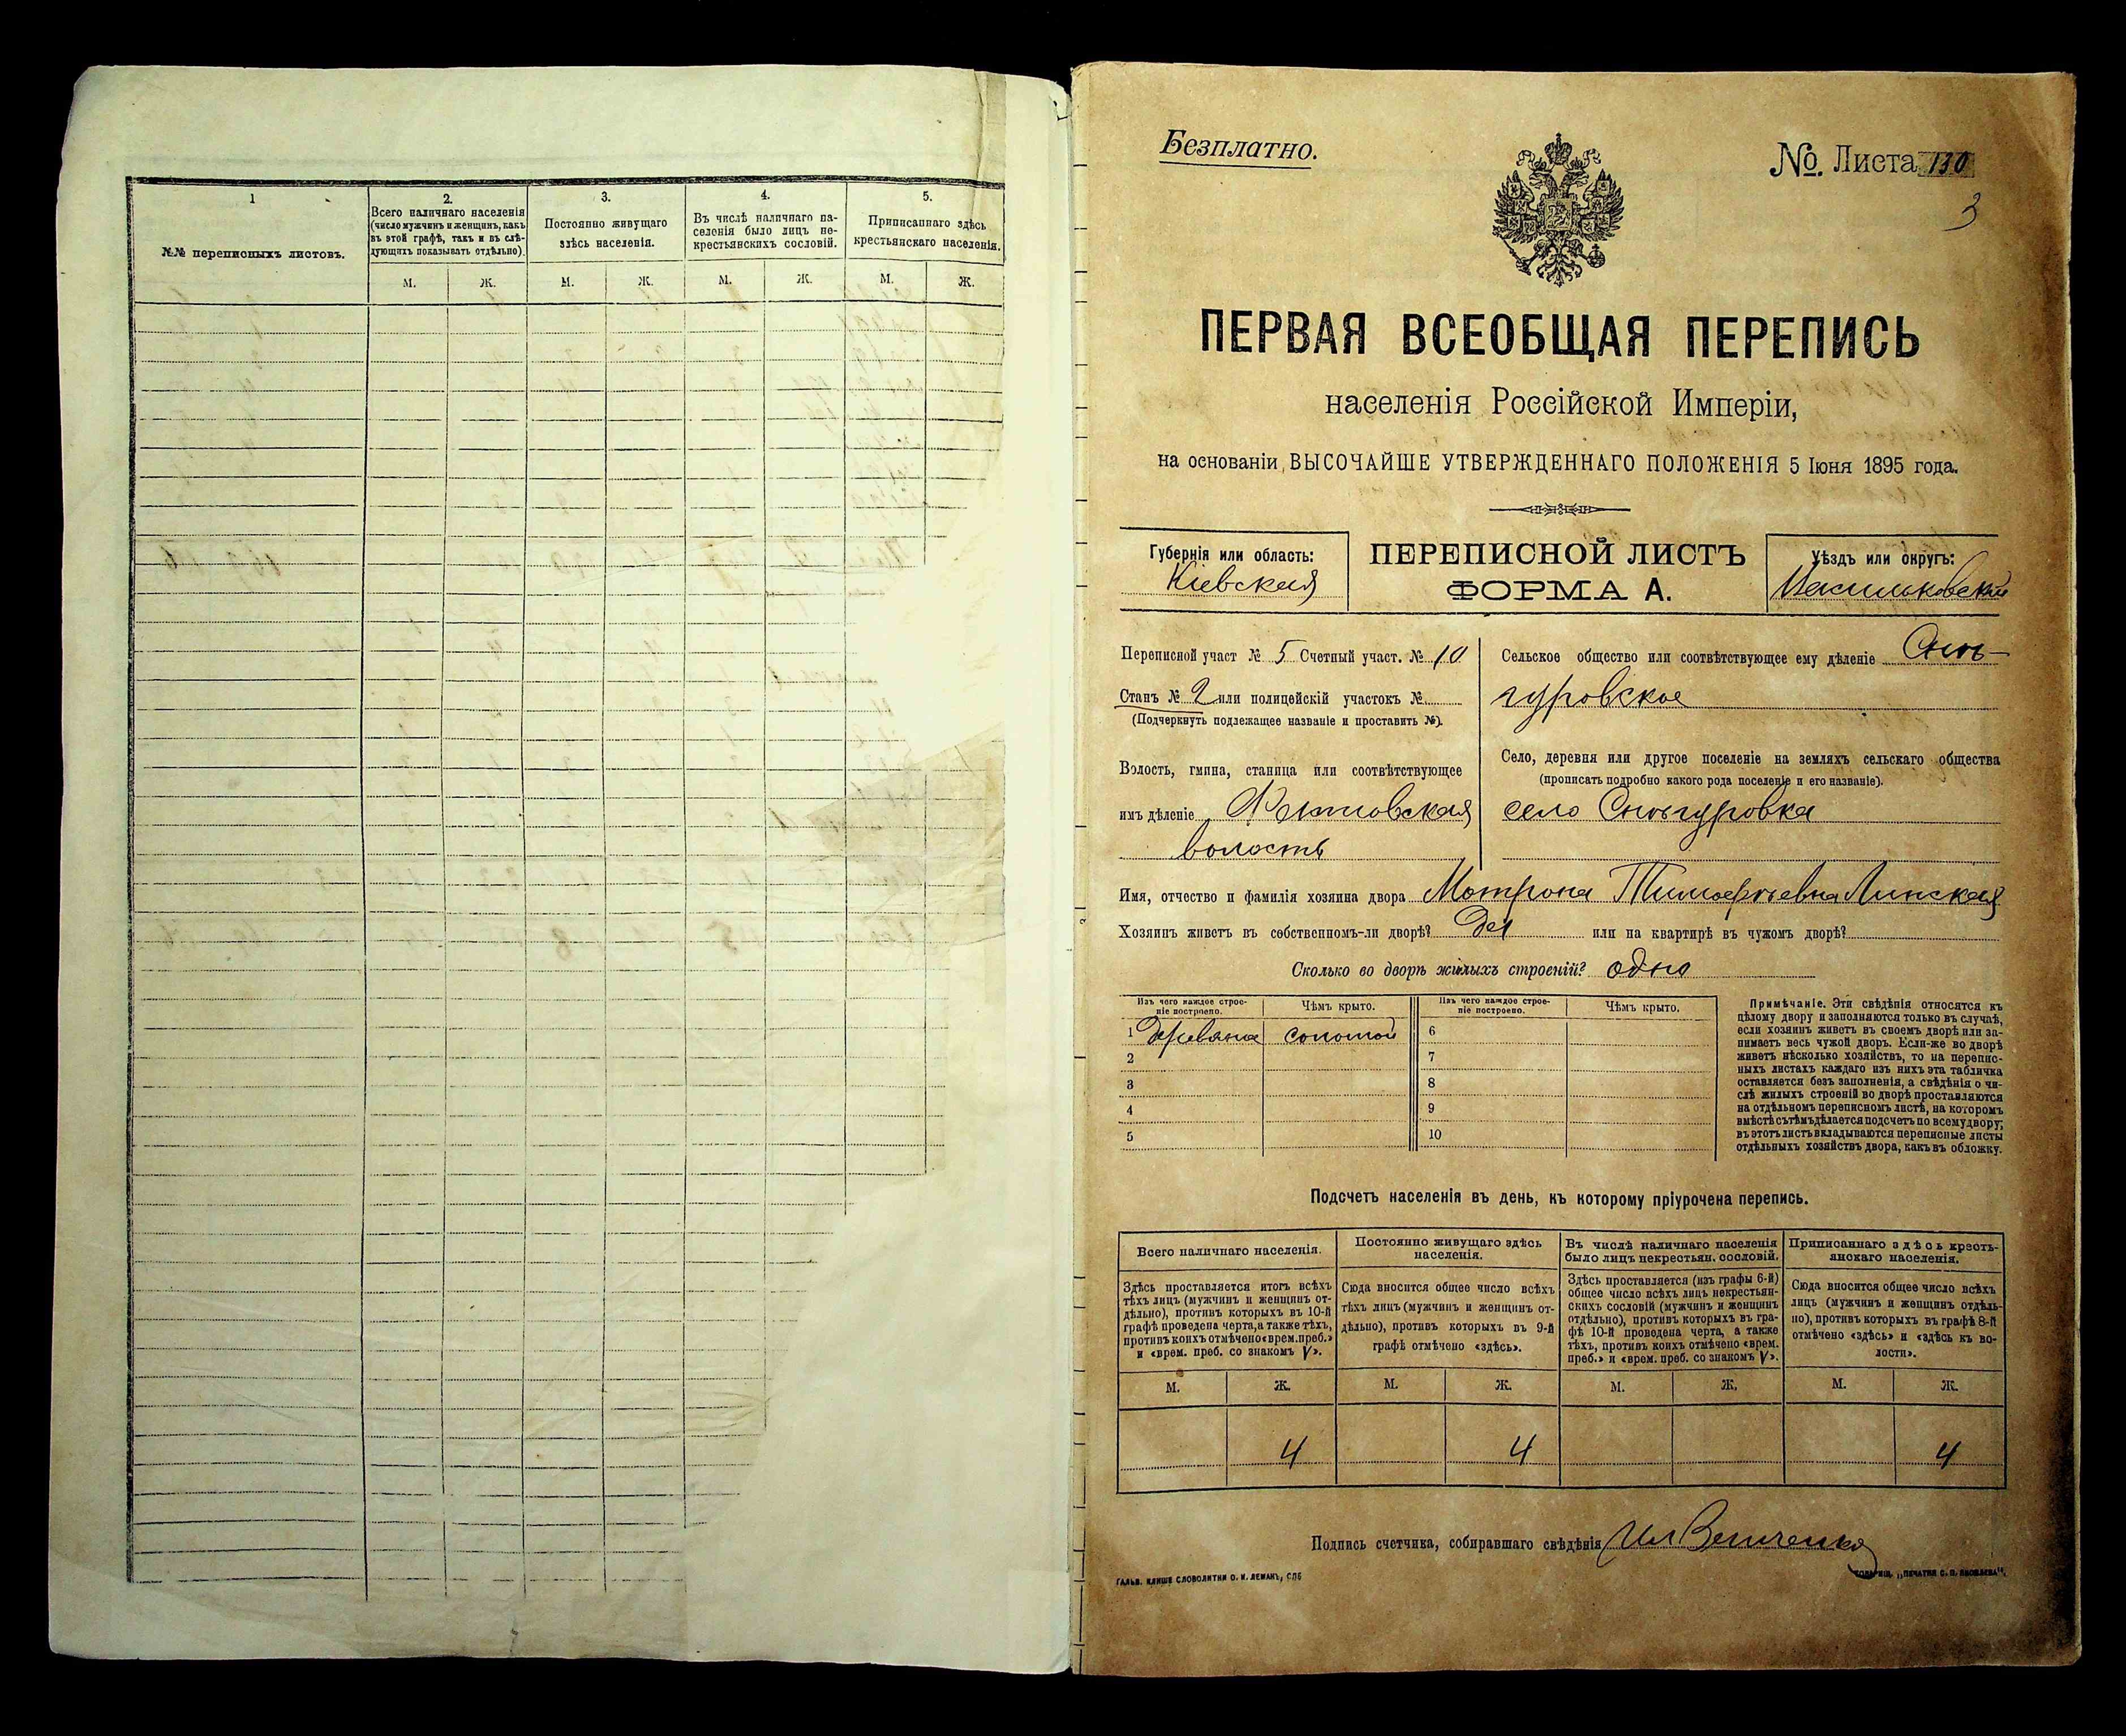 1
2.
3.
4.
5.
№№ переписныхъ листовъ.
Всего наличнаго населенія
(число мужчинъ и женщинъ, какъ
въ этой графѣ, такъ и въ слѣ-
дующихъ показывать отдѣльно).
Постоянно живущаго
здѣсь населенія.
Въ числѣ наличнаго на-
селенія было лицъ не-
крестьянскихъ сословій.
Приписаннаго здѣсь
крестьянскаго населенія.
М. Ж. М. Ж. М. Ж. М. Ж.
Безплатно.
№. Листа 130
3
ПЕРВАЯ ВСЕОБЩАЯ ПЕРЕПИСЬ
населенія Россійской Имперіи,
на основаніи ВЫСОЧАЙШЕ УТВЕРЖДЕННАГО ПОЛОЖЕНІЯ 5 Іюня 1895 года.
Губернія или область:
Кіевская
ПЕРЕПИСНОЙ ЛИСТЪ
ФОРМА А.
Уѣздъ или округъ:
Васильковскій
Переписной участ № 5 Счетный участ. № 10
Станъ № 2 или полицейскій участокъ №
(Подчеркнуть подлежащее названіе и проставить №).
Волость, гмина, станица или соотвѣтствующее
имъ дѣленіе
волость
Сельское общество или соотвѣтствующее ему дѣленіе Снѣ-
гуровское
Село, деревня или другое поселеніе на земляхъ сельскаго общества
(прописать подробно какого рода поселеніе и его названіе).
село Снѣгуровка
Имя, отчество и фамилія хозяина двора Мотрона Тимофѣевна Линская
Хозяинъ живетъ въ собственномъ-ли дворѣ? Да или на квартирѣ въ чужомъ дворѣ?
Сколько во дворѣ жилыхъ строеній? одно
Изъ чего каждое строе-
ніе построено.
Чѣмъ крыто.
Изъ чего каждое строе-
ніе построено.
Чѣмъ крыто.
1 деревяное соломой 6
2 7
3 8
4 9
5 10
Примѣчаніе. Эти свѣдѣнія относятся къ
цѣлому двору и заполняются только въ случаѣ,
если хозяинъ живетъ въ своемъ дворѣ или за-
нимаетъ весь чужой дворъ. Если-же во дворѣ
живетъ нѣсколько хозяйствъ, то на перепис-
ныхъ листахъ каждаго изъ нихъ эта табличка
оставляется безъ заполненія, а свѣдѣнія о чи-
слѣ жилыхъ строеній во дворѣ проставляются
на отдѣльномъ переписномъ листѣ, на которомъ
вмѣстѣ съ тѣмъ дѣлается подсчетъ по всему двору;
въ этотъ листъ вкладываются переписные листы
отдѣльныхъ хозяйствъ двора, какъ въ обложку.
Подсчетъ населенія въ день, къ которому пріурочена перепись.
Всего наличнаго населенія.
Здѣсь проставляется итогъ всѣхъ
тѣхъ лицъ (мужчинъ и женщинъ от-
дѣльно), противъ которыхъ въ 10-й
графѣ проведена черта, а также тѣхъ,
противъ коихъ отмѣчено «врем. преб.»
и «врем. преб. со знакомъ V».
Постоянно живущаго здѣсь
населенія.
Сюда вносится общее число всѣхъ
тѣхъ лицъ (мужчинъ и женщинъ от-
дѣльно), противъ которыхъ въ 9-й
графѣ отмѣчено «здѣсь».
Въ числѣ наличнаго населенія
было лицъ некрестьян. сословій.
Здѣсь проставляется (изъ графы 6-й)
общее число всѣхъ лицъ некрестьян-
скихъ сословій (мужчинъ и женщинъ
отдѣльно), противъ которыхъ въ гра-
фѣ 10-й проведена черта, а также
тѣхъ, противъ коихъ отмѣчено «врем.
преб.» и «врем. преб. со знакомъ V».
Приписаннаго здѣсь кресть-
янскаго населенія.
Сюда вносится общее число всѣхъ
лицъ (мужчинъ и женщинъ отдѣль-
но), противъ которыхъ въ графѣ 8-й
отмѣчено «здѣсь» и «здѣсь къ во-
лости».
М. Ж. М. Ж. М. Ж. М. Ж.
4 4 4
Подпись счетчика, собиравшаго свѣдѣнія
ГАЛЬВ. КЛИШЕ СЛОВОЛИТНИ О. И. ЛЕМАНЪ, СПБ
ТОВАРИЩ. „ПЕЧАТНЯ С. П. ЯКОВЛЕВА“.